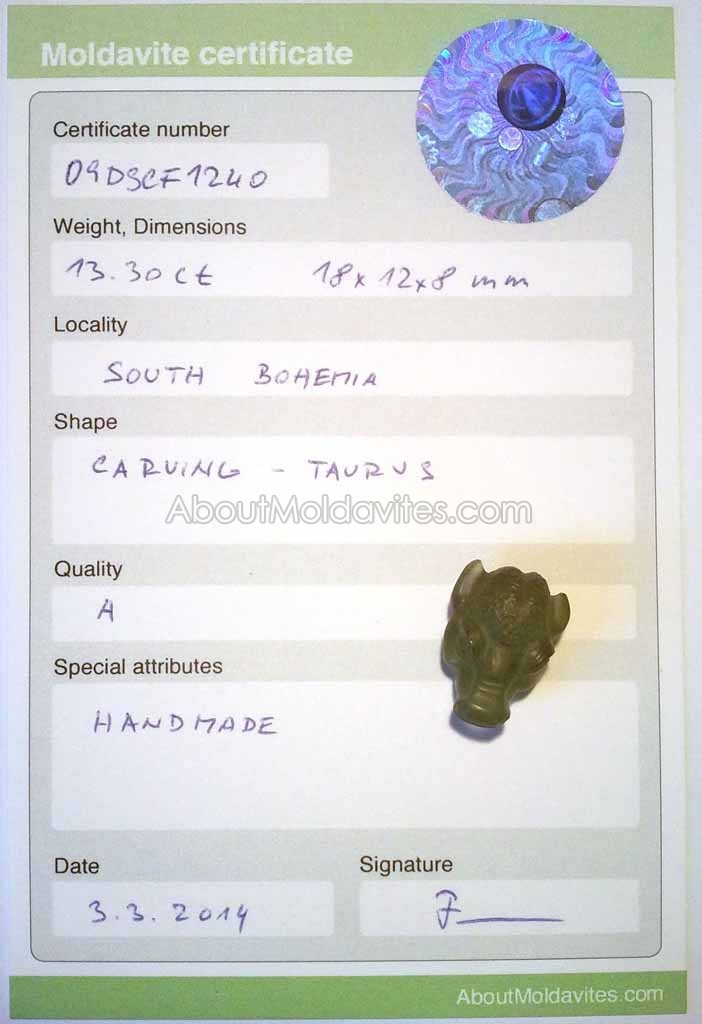 Moldavite certificate
Certificate number
09DSCF1240
Weight, Dimensions
13.30ct 18x12x8 mm
Locality
SOUTH BOHEMIA
Shape
CARVING - TAURUS
AboutMoldavites.com
Quality
A
Special attributes
HANDMADE
Date Signature
3.3.2014
AboutMoldavites.com